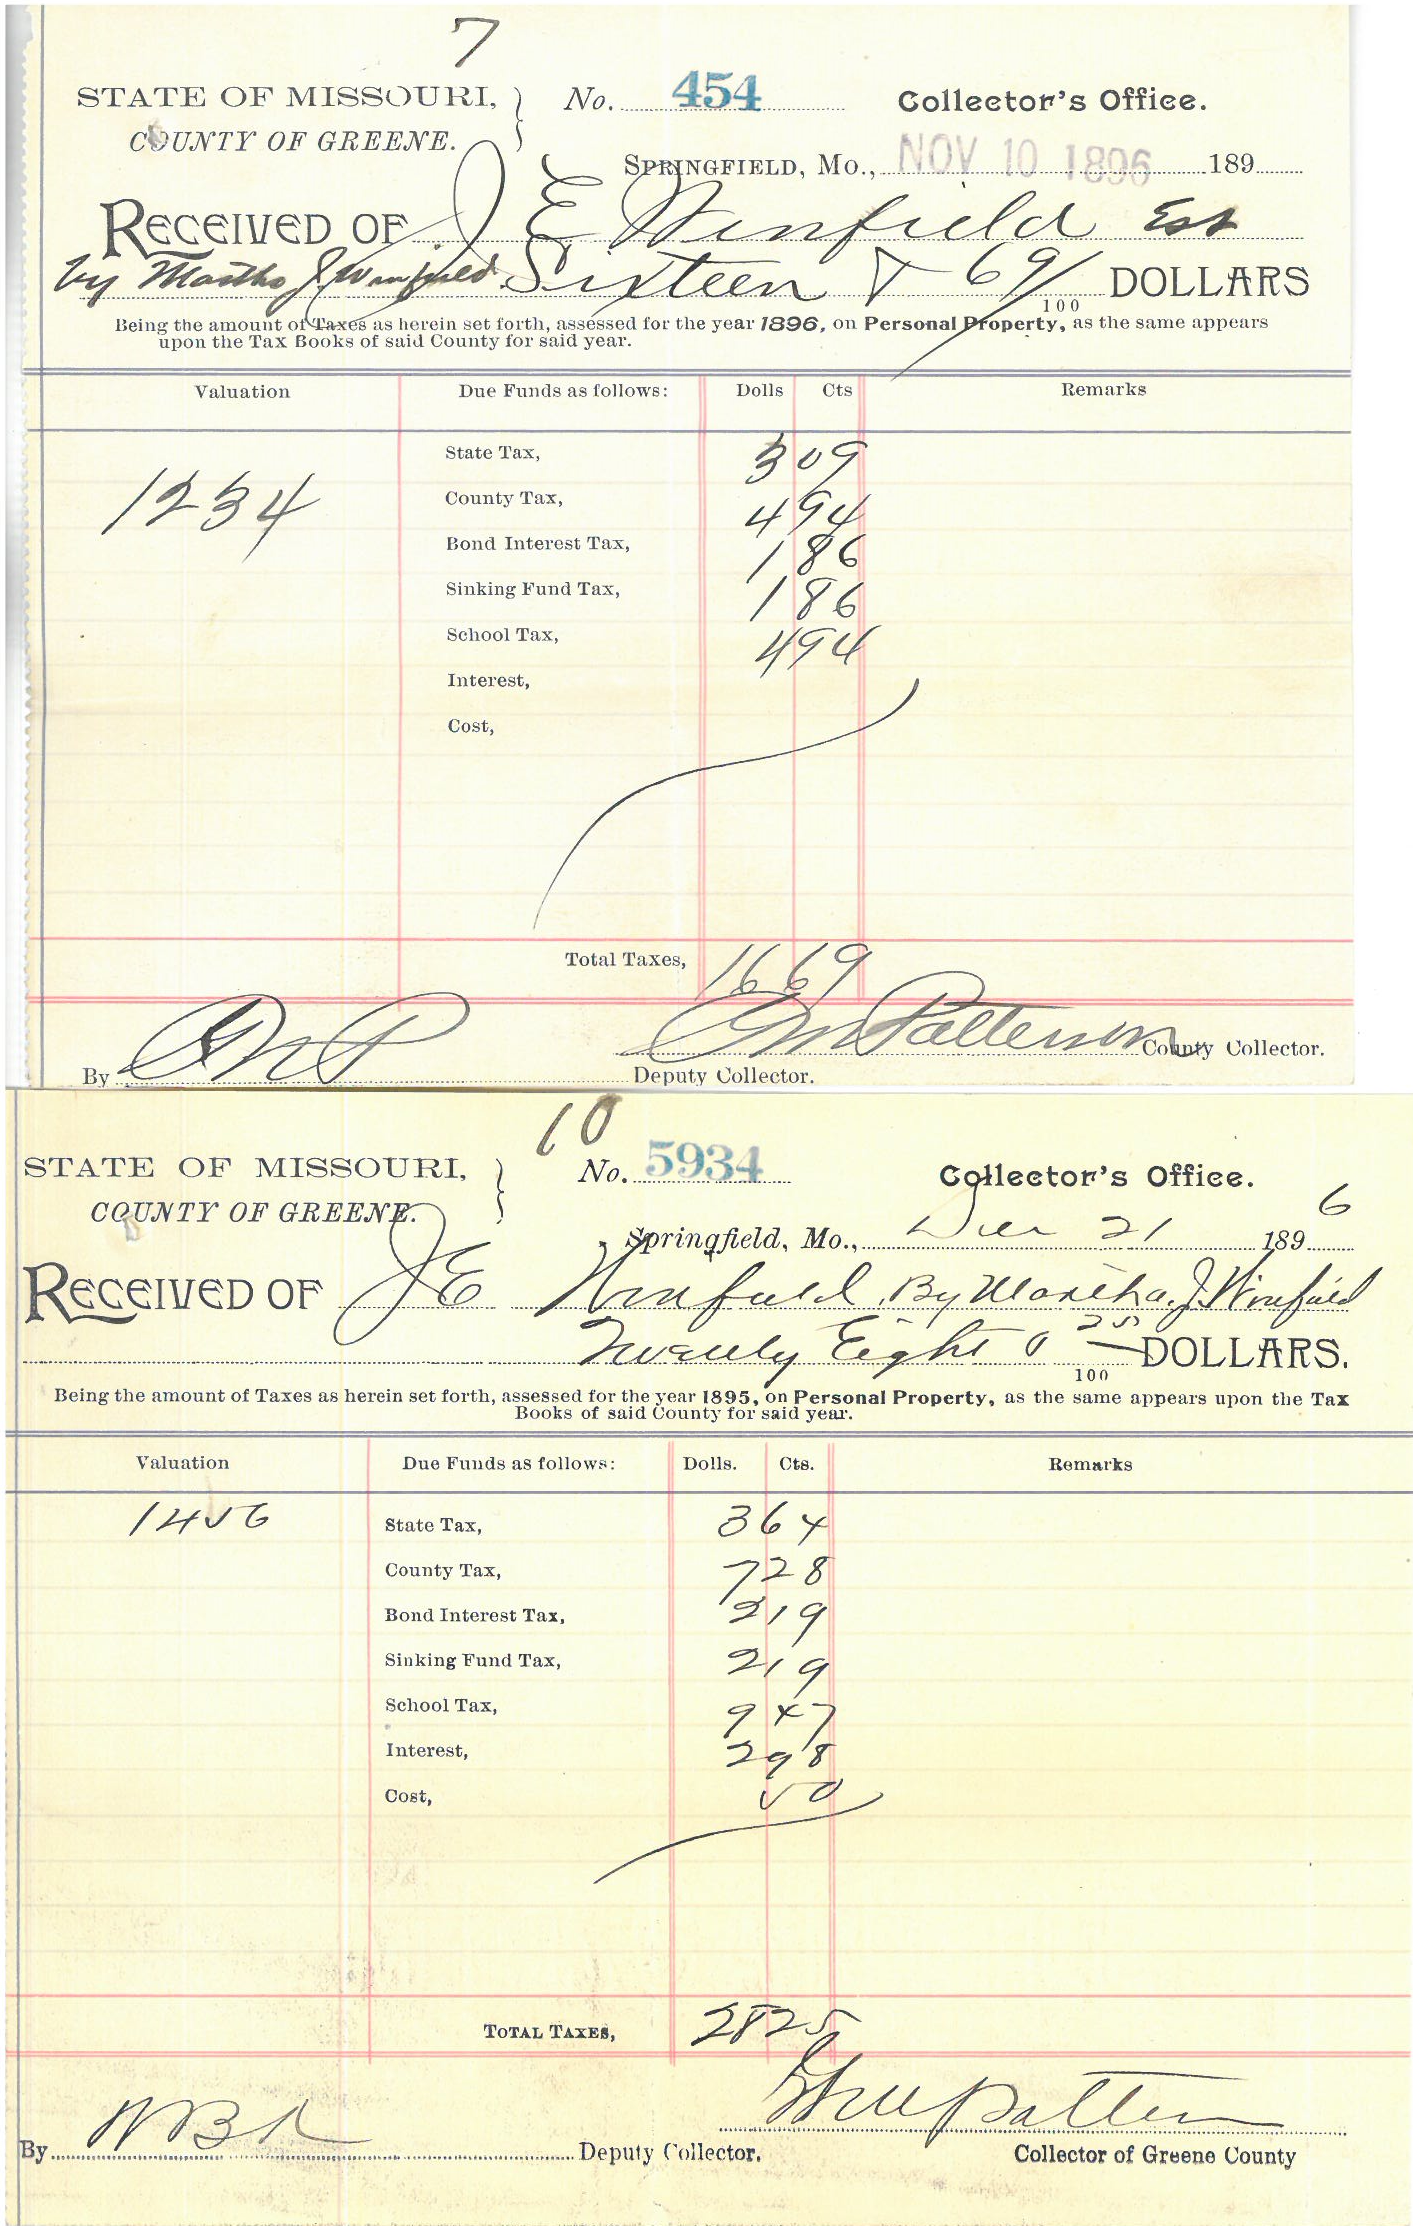 7
STATE OF MISSOURI, } No. 454 Collector's Office.
COUNTY OF GREENE.
SPRINGFIELD, MO., NOV 10 1896 189
RECEIVED OF J E Winfield Est
by Martha J. Winfield Sixteen & 69/100 DOLLARS
Being the amount of Taxes as herein set forth, assessed for the year 1896, on Personal Property, as the same appears
upon the Tax Books of said County for said year.
Valuation Due Funds as follows: Dolls Cts Remarks
State Tax, 3 09
1234 County Tax, 4 94
Bond Interest Tax, 1 86
Sinking Fund Tax, 1 86
School Tax, 4 94
Interest,
Cost,
Total Taxes, 16 69
Patterson County Collector.
By Deputy Collector.
10
STATE OF MISSOURI, } No. 5934 Collector's Office.
COUNTY OF GREENE.
Springfield, Mo., Dec 21 1896
RECEIVED OF J E Winfield By Martha J. Winfield
Twenty Eight & 25/100 DOLLARS.
Being the amount of Taxes as herein set forth, assessed for the year 1895, on Personal Property, as the same appears upon the Tax
Books of said County for said year.
Valuation Due Funds as follows: Dolls. Cts. Remarks
1456 State Tax, 3 64
County Tax, 7 28
Bond Interest Tax, 2 19
Sinking Fund Tax, 2 19
School Tax, 9 47
Interest, 2 98
Cost, 50
TOTAL TAXES, 28 25
By Deputy Collector. Collector of Greene County